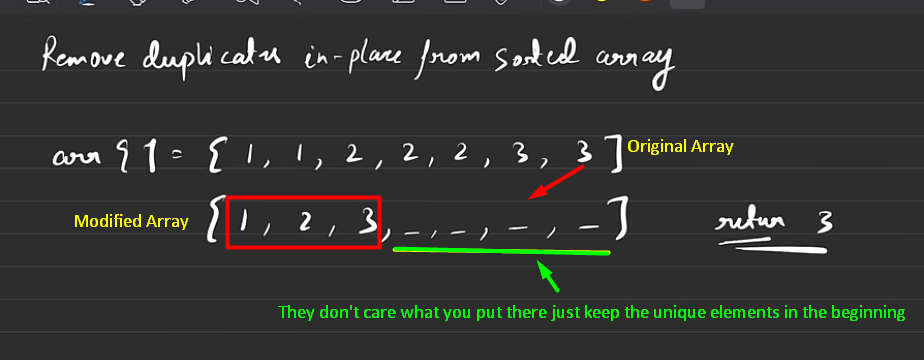 Remove duplicates in-place from sorted array
arr[] = [1, 1, 2, 2, 2, 3, 3] Original Array
Modified Array [1, 2, 3, _, _, _, _] return 3
They don't care what you put there just keep the unique elements in the beginning